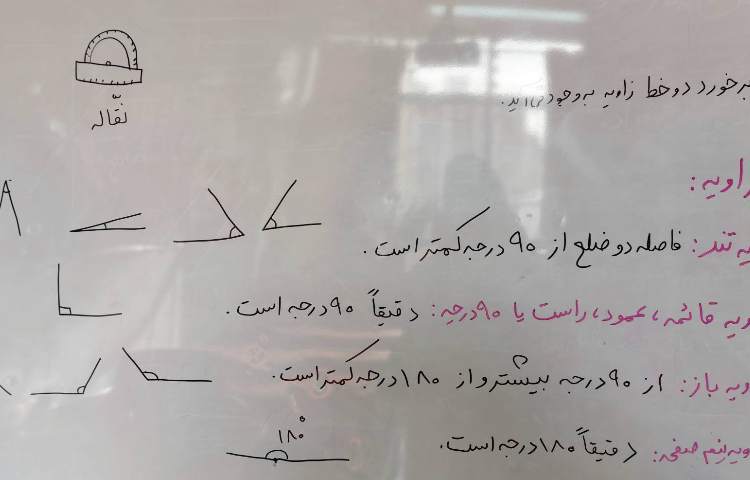 نقّاله
برخورد دو خط زاویه به وجود می‌آید.
زاویه:
تند: فاصله دو ضلع از ۹۰ درجه کمتر است.
قائمه، عمود، راست یا ۹۰ درجه: دقیقاً ۹۰ درجه است.
باز: از ۹۰ درجه بیشتر و از ۱۸۰ درجه کمتر است.
۱۸۰°
نیم صفحه: دقیقاً ۱۸۰ درجه است.